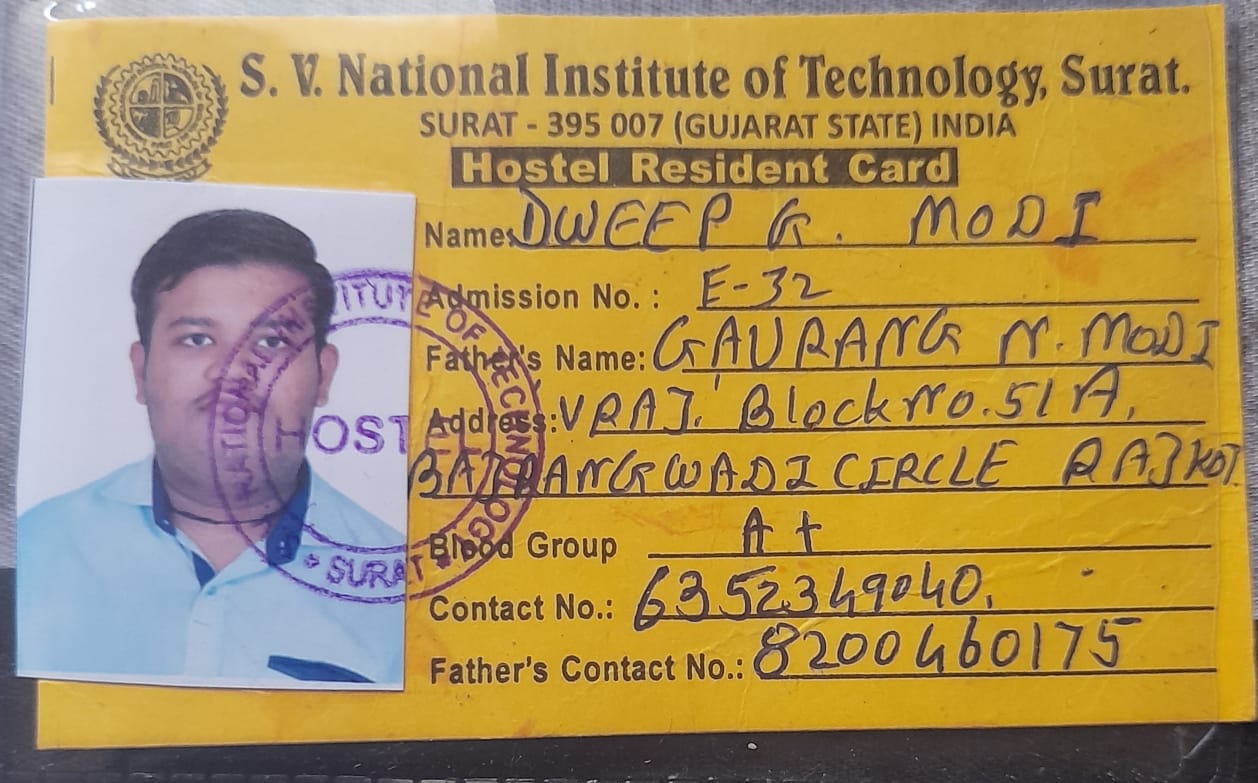 S. V. National Institute of Technology, Surat.
SURAT - 395 007 (GUJARAT STATE) INDIA
Hostel Resident Card
Name: DWEEP G. MODI
Admission No. : E-32
Father's Name: GAURANG N. MODI
Address: VRAJ. Block No. 51 A,
BAJRANGWADI CIRCLE RAJKOT
Blood Group A+
Contact No.: 6352349040.
Father's Contact No.: 8200460175
INSTITUTE OF TECHNOLOGY
NATIONAL
HOSTEL
* SURAT *